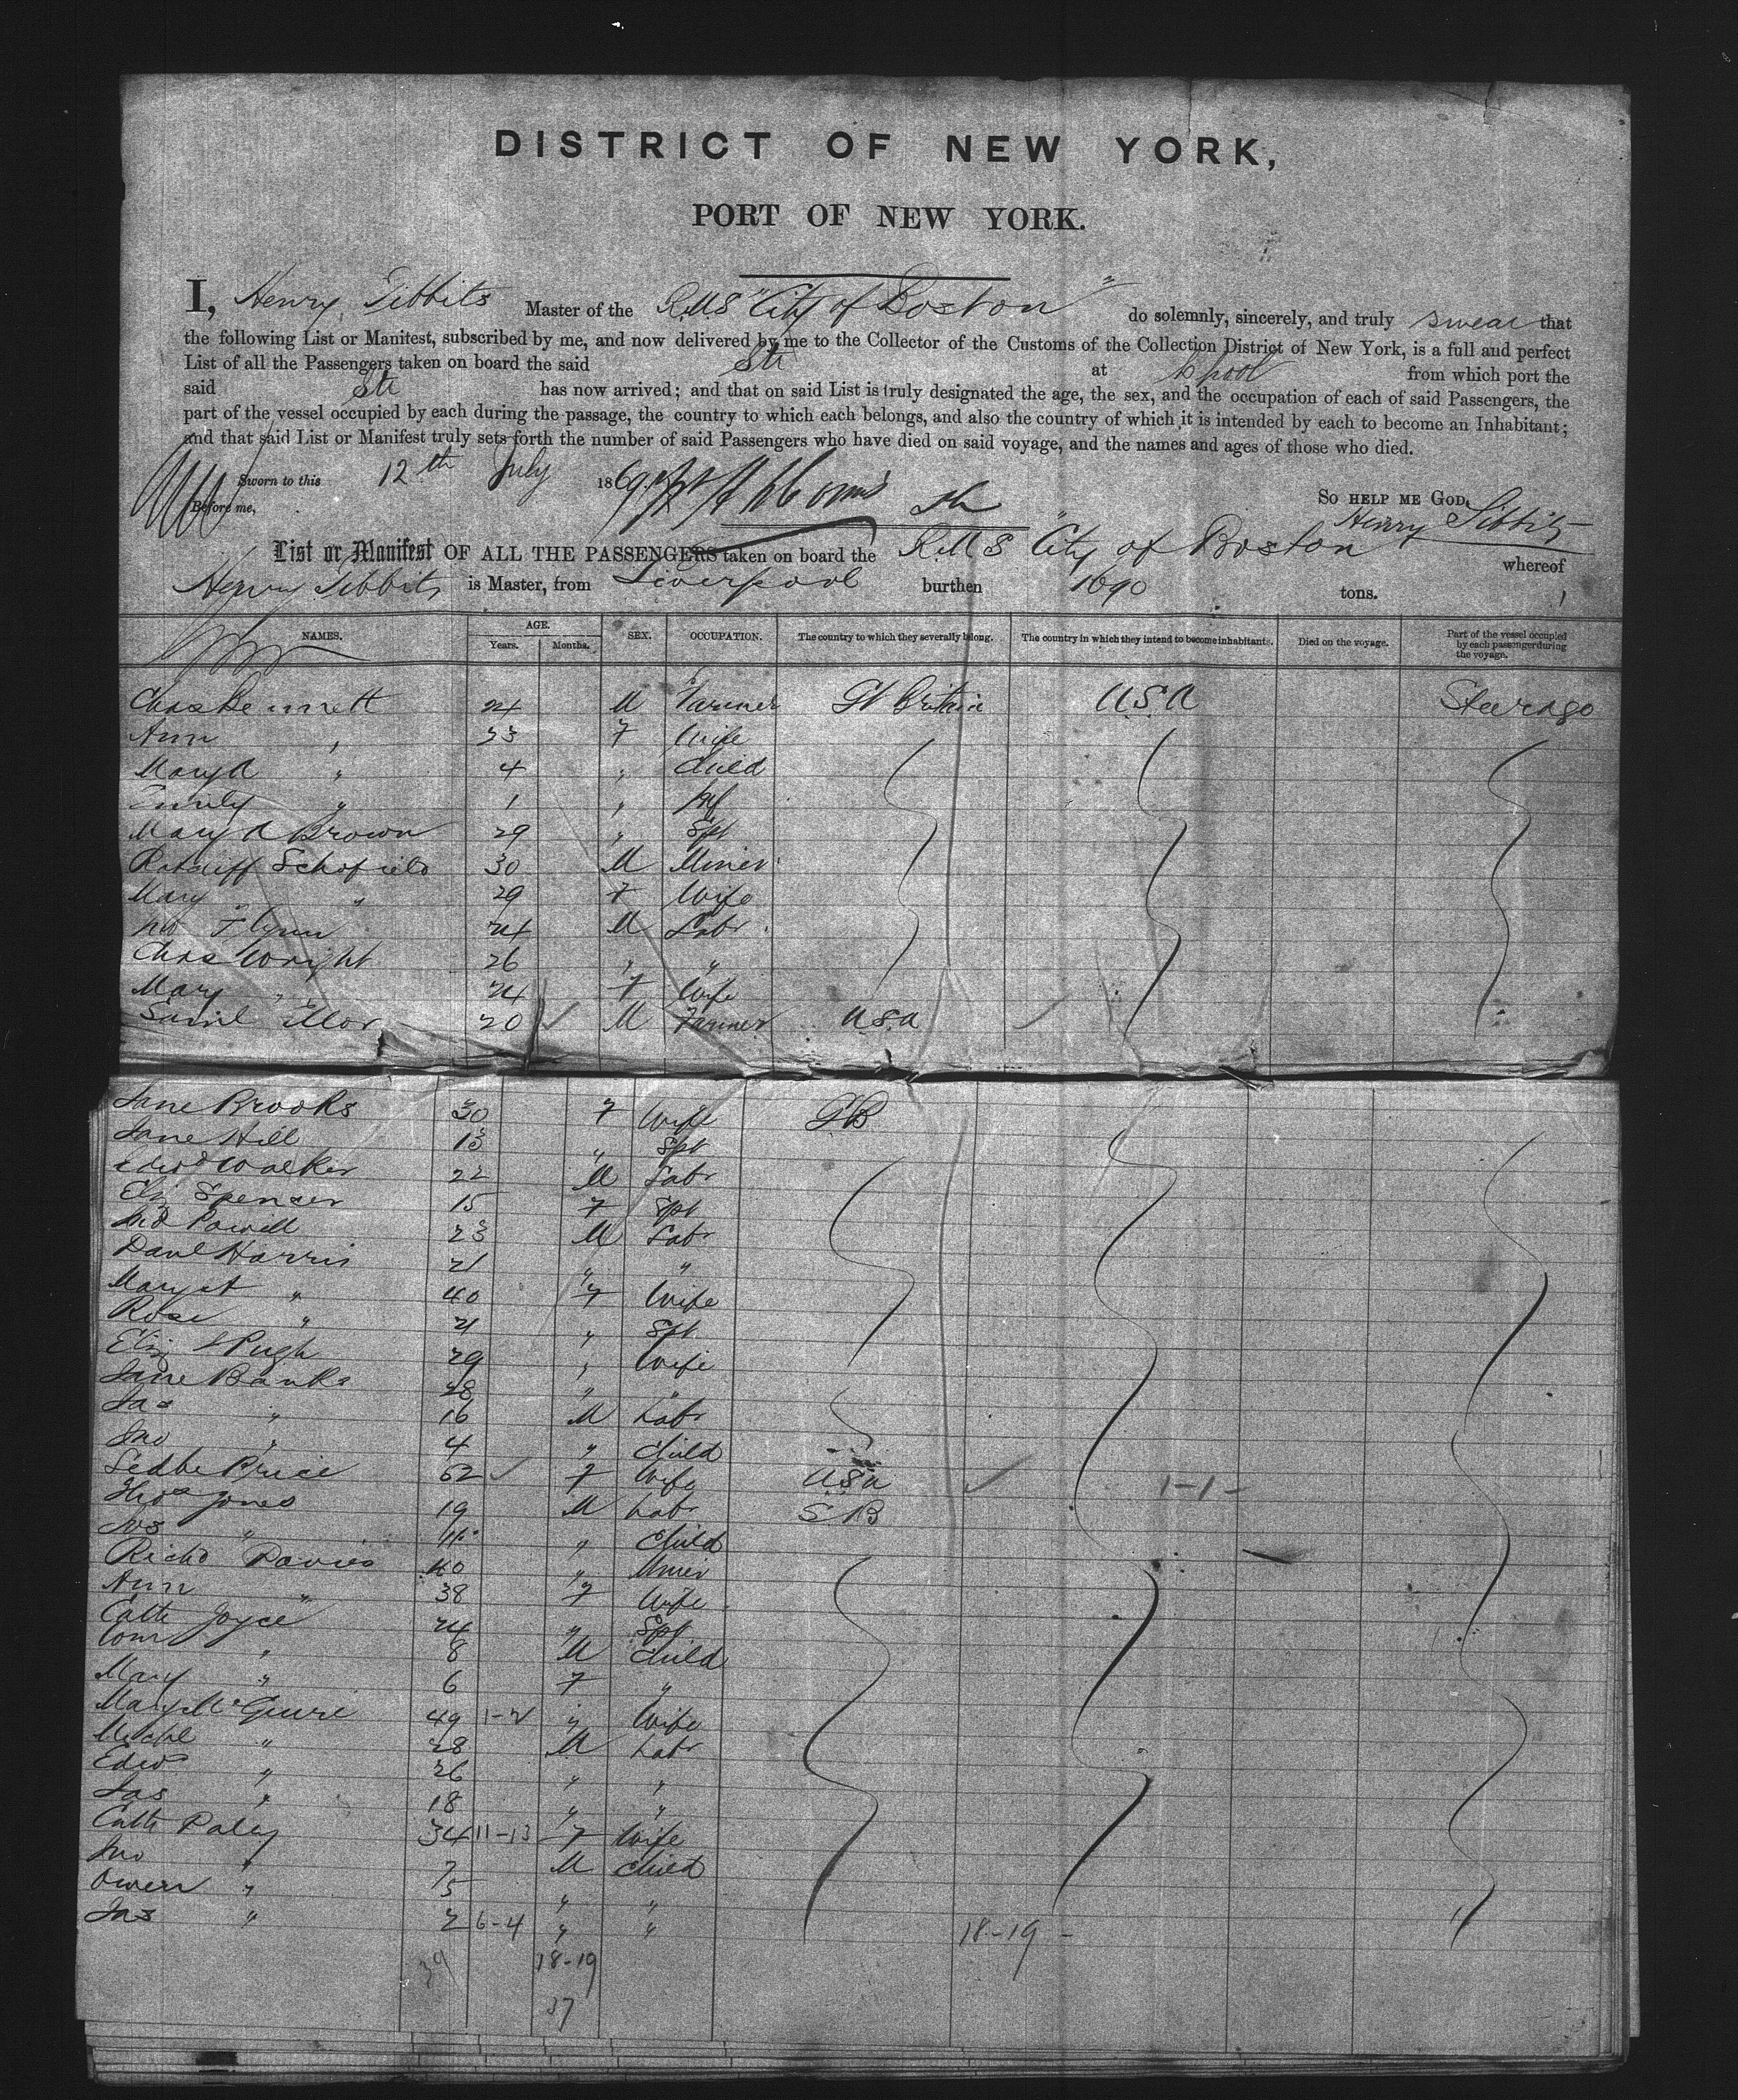 DISTRICT OF NEW YORK,
PORT OF NEW YORK.
I, Henry Tibbits Master of the RMS "City of Boston" do solemnly, sincerely, and truly swear that
the following List or Manifest, subscribed by me, and now delivered by me to the Collector of the Customs of the Collection District of New York, is a full and perfect
List of all the Passengers taken on board the said Str at L'pool from which port the
said Str has now arrived; and that on said List is truly designated the age, the sex, and the occupation of each of said Passengers, the
part of the vessel occupied by each during the passage, the country to which each belongs, and also the country of which it is intended by each to become an Inhabitant;
and that said List or Manifest truly sets forth the number of said Passengers who have died on said voyage, and the names and ages of those who died.
Sworn to this 12th July 1869
Before me,
So HELP ME GOD,
Henry Tibbits
List or Manifest OF ALL THE PASSENGERS taken on board the RMS City of Boston whereof
Henry Tibbits is Master, from Liverpool burthen 1690 tons.
NAMES. AGE. Years. Months. SEX. OCCUPATION. The country to which they severally belong. The country in which they intend to become inhabitants. Died on the voyage. Part of the vessel occupied by each passenger during the voyage.
Chas 24 M Farmer Gt Britain USA Steerage
Ann " 23 F Wife
Mary A " 4 " Child
Emily " 1 " Inf
Mary A Brown 29 " Spt
Ratcliff Schofield 30 M Miner
Mary " 29 F Wife
Flynn 24 M Labr
Chas Wright 26 " "
Mary " 24 F Wife
Saml 20 M Farmer USA
Jane Brooks 30 F Wife GB
Jane Hill 13 " Spt
Edwd Walker 22 M Labr
Eliz Spencer 15 F Spt
Jno Powell 23 M Labr
Danl Harris 21 " "
Margt " 40 F Wife
Rose " 21 " Spt
Eliz Pugh 29 " Wife
Jane Banks 28 " "
Jas " 16 M Labr
Jno " 4 " Child
Price 62 F Wife USA 1-1-
Thos Jones 19 M Labr GB
Jos " 11 " Child
Richd Davies 40 " Miner
Ann " 38 F Wife
Cath Joyce 24 " Spt
Tom " 8 M Child
Mary " 6 F "
Mary McGuire 49 1-2 " Wife
Michl " 28 M Labr
Edwd " 26 " "
Jas " 18 " "
Cath Daley 34 11-13 F Wife
Jno " 7 M Child
Owen " 5 " "
Jas " 2 6-4 " " 18-19 -
39 18-19
37